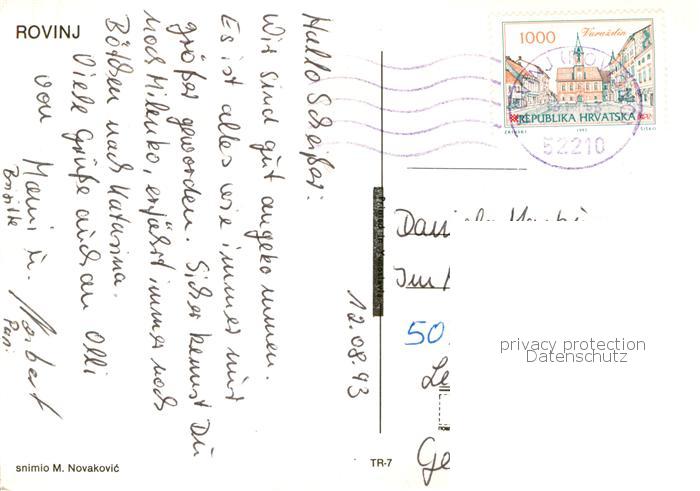 ROVINJ
Hallo Scheißer:
Wir sind gut angekommen.
Es ist alles wie immer nur
größer geworden. Sicher kennst Du
noch Milenko, er fährt immer noch
Bötchen nach Katarina.
Viele Grüße auch an Olli
von Mami u. Norbert
Brigitte
12.08.93
1000
Varaždin
REPUBLIKA HRVATSKA
1993
52210
50
privacy protection
Datenschutz
Le
Ge
snimio M. Novaković
TR-7